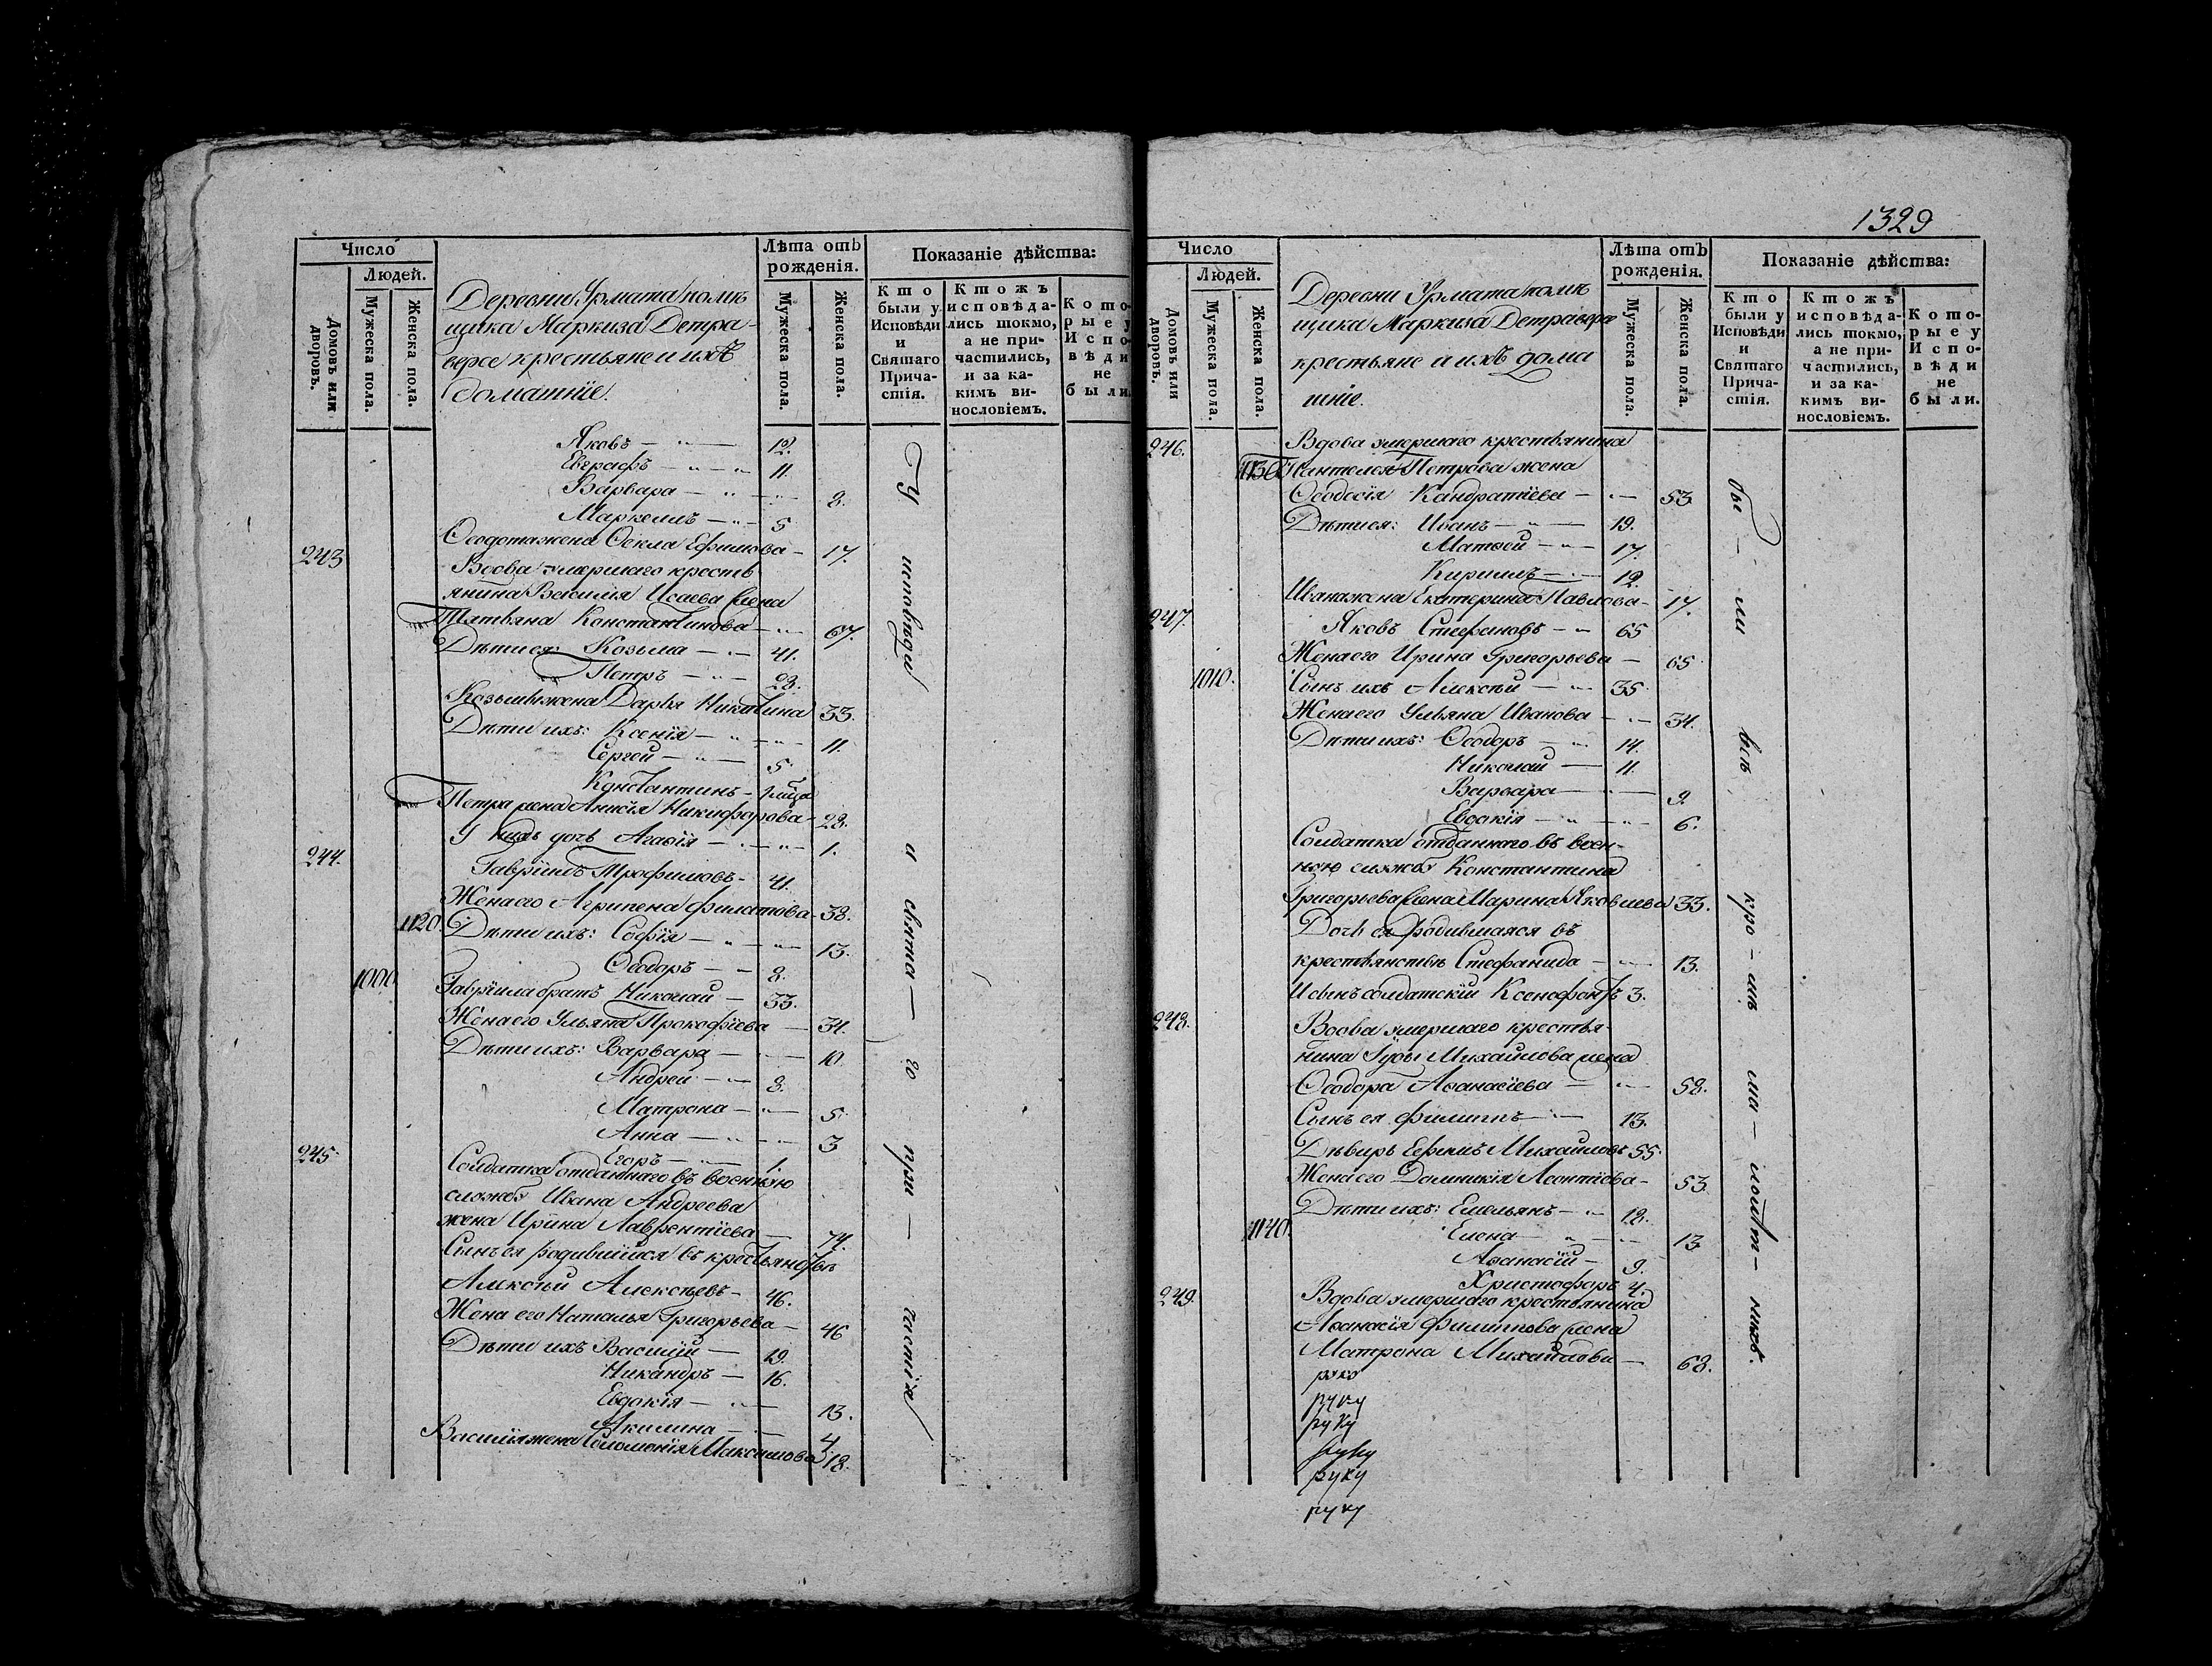 Число
Людей.
Домовъ или дворовъ.
Мужеска пола.
Женска пола.
Деревни Урмата помѣ
щика Маркиза Детра-
верса крестьяне и ихъ
домашніе.
Лѣта отъ рожденія.
Мужеска пола.
Женска пола.
Показаніе дѣйства:
Кто были у Исповѣди и Святаго Причастія.
Ктожъ исповѣдались токмо, а не причастились, и за какимъ винословіемъ.
Которые у Исповѣди не были.
Яковъ — 12.
Евграфъ — 11.
Варвара — 8.
Маркеллъ — 5
Ѳеодота жена Ѳекла Ефимова — 17.
243 Вдова умершаго кресть
янина Василія Исаева жена
Татьяна Константинова — 67.
Дѣти ея: Козьма — 41.
Петръ — 28.
Козьмы жена Дарья Никитина 33.
Дѣти ихъ: Ксенія — 11.
Сергей — 5.
Константинъ —
Петра жена Анисія Никифорова — 28.
У нихъ дочь Агафія — 1.
244. Гавріилъ Трофимовъ — 41.
Жена его Агрипена Филатова — 38.
1120. Дѣти ихъ: Софія — 13.
Ѳеодоръ — 8.
1000. Гавріила братъ Николай — 33.
Жена его Ульяна Прокофіева — 34.
Дѣти ихъ: Варвара — 10.
Андрей — 8.
Матрона — 5.
Анна — 3
Егоръ — 1.
245. Солдатка отданнаго въ военную
службу Ивана Андреева
жена Ирина Лаврентіева — 74.
Сынъ ея родившійся въ крестьянствѣ
Алексѣй Алексѣевъ — 46.
Жена его Наталья Григорьева — 46
Дѣти ихъ Василій — 19.
Никандръ — 16.
Евдокія — 13.
Акилина — 4.
Василія жена Соломонія Максимова 18.
У исповѣди и свята — го при — частія
1329
Число
Людей.
Домовъ или дворовъ.
Мужеска пола.
Женска пола.
Деревни Урмата помѣ
щика Маркиза Детраверса
крестьяне и ихъ дома
шніе.
Лѣта отъ рожденія.
Мужеска пола.
Женска пола.
Показаніе дѣйства:
Кто были у Исповѣди и Святаго Причастія.
Ктожъ исповѣдались токмо, а не причастились, и за какимъ винословіемъ.
Которые у Исповѣди не были.
246. Вдова умершаго крестьянина
1130 Пантелея Петрова жена
Ѳеодосія Кандратіева — 53.
Дѣти ея: Иванъ — 19.
Матвей — 17.
Кириллъ — 12.
Ивана жена Екатерина Павлова — 17.
247. Яковъ Стефановъ — 65
Жена его Ирина Григорьева — 65.
1010. Сынъ ихъ Алексѣй — 35.
Жена его Ульяна Иванова — 34.
Дѣти ихъ: Ѳеодоръ — 14.
Николай — 11.
Варвара — 9.
Евдокія — 6.
Солдатка отданнаго въ воен-
ную службу Константина
Григорьева жена Марина Яковлева 33.
Дочь ея родившаяся въ
крестьянствѣ Стефанида — 13.
И сынъ солдатскій Ксенофонтъ 3.
248. Вдова умершаго крестья-
нина Гуры Михайлова жена
Ѳеодора Аѳанасіева — 58.
Сынъ ея Филиппъ — 13.
Дѣверь Ефимъ Михайловъ 55.
Жена его Домникія Леонтіева — 53
Дѣти ихъ: Емельянъ — 18.
1140. Елена — 13
Аѳанасій — 9.
Христофоръ 4.
249. Вдова умершаго крестьянина
Аѳанасія Филиппова жена
Матрона Михайлова — 68.
руку
руку
руку
руку
руку
бы — ли всѣ кро — мѣ ма — лолѣт — нихъ.